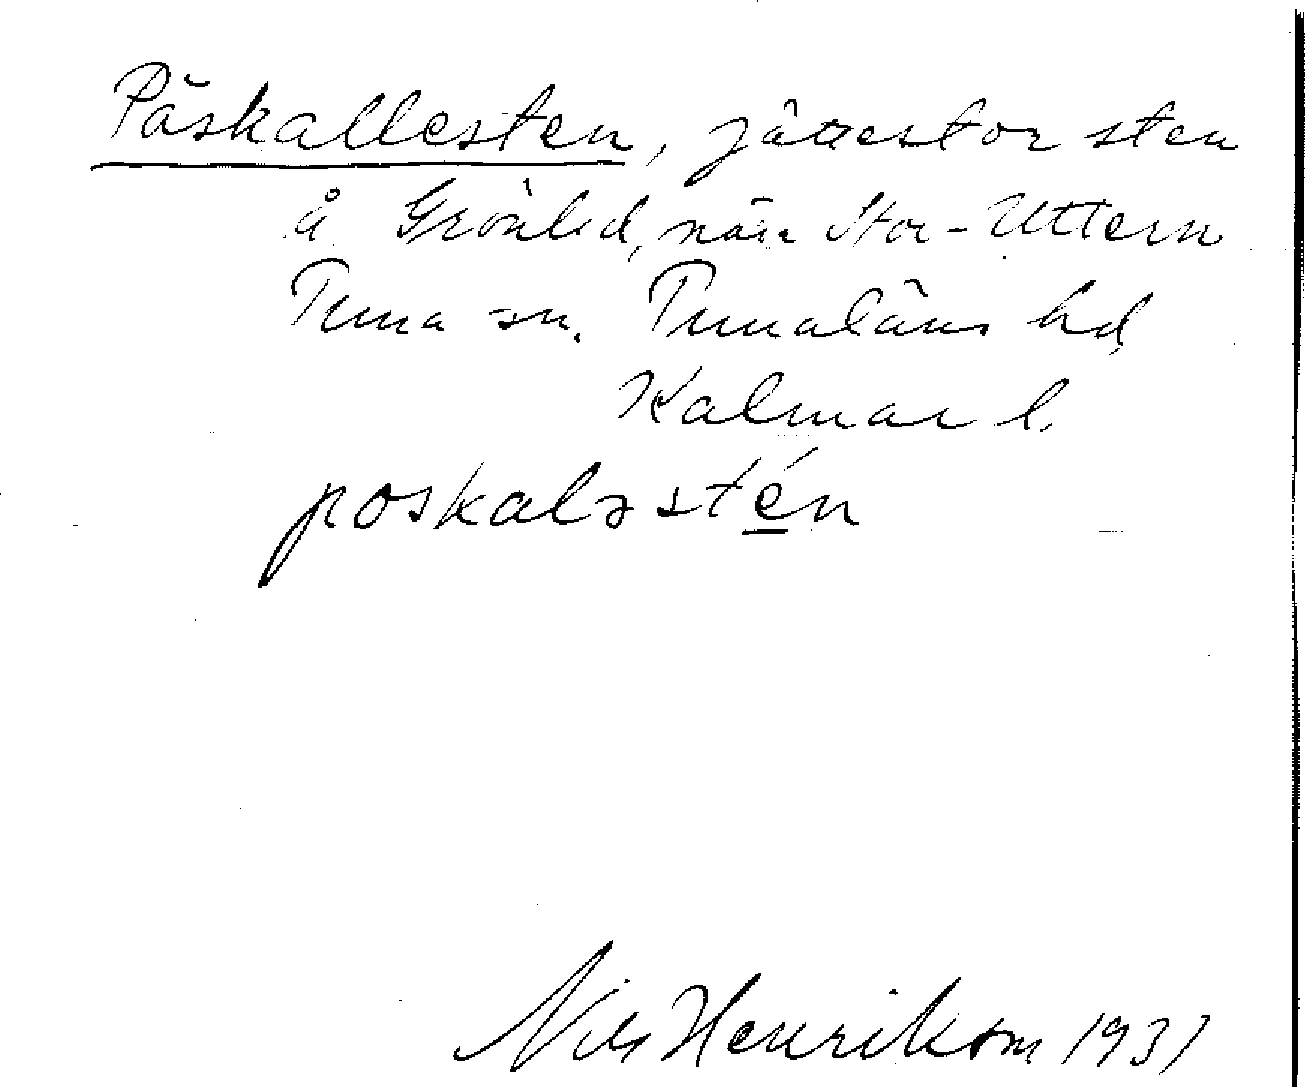 Påskallesten, jättestor sten
å Grönlid, när Stor-Uttern
Tuna sn. Tunaläns hd,
Kalmar l.
poskaləstén
Nils Henrikson 1931